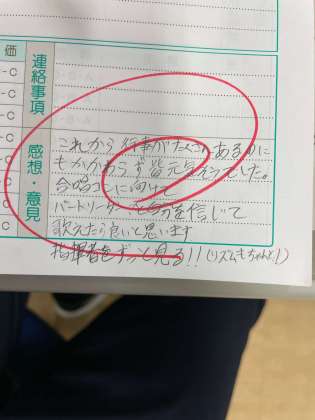 価
-C
-C
-C
-C
-C
-C
-C
連絡事項
感想・意見
これから行事がたくさんあるのに
もかかわらず皆元気そうでした。
合唱コンに向けて
パートリーダーと自分を信じて
歌えたら良いと思います
指揮者をずっと見る!!(リズムもちゃんと!)